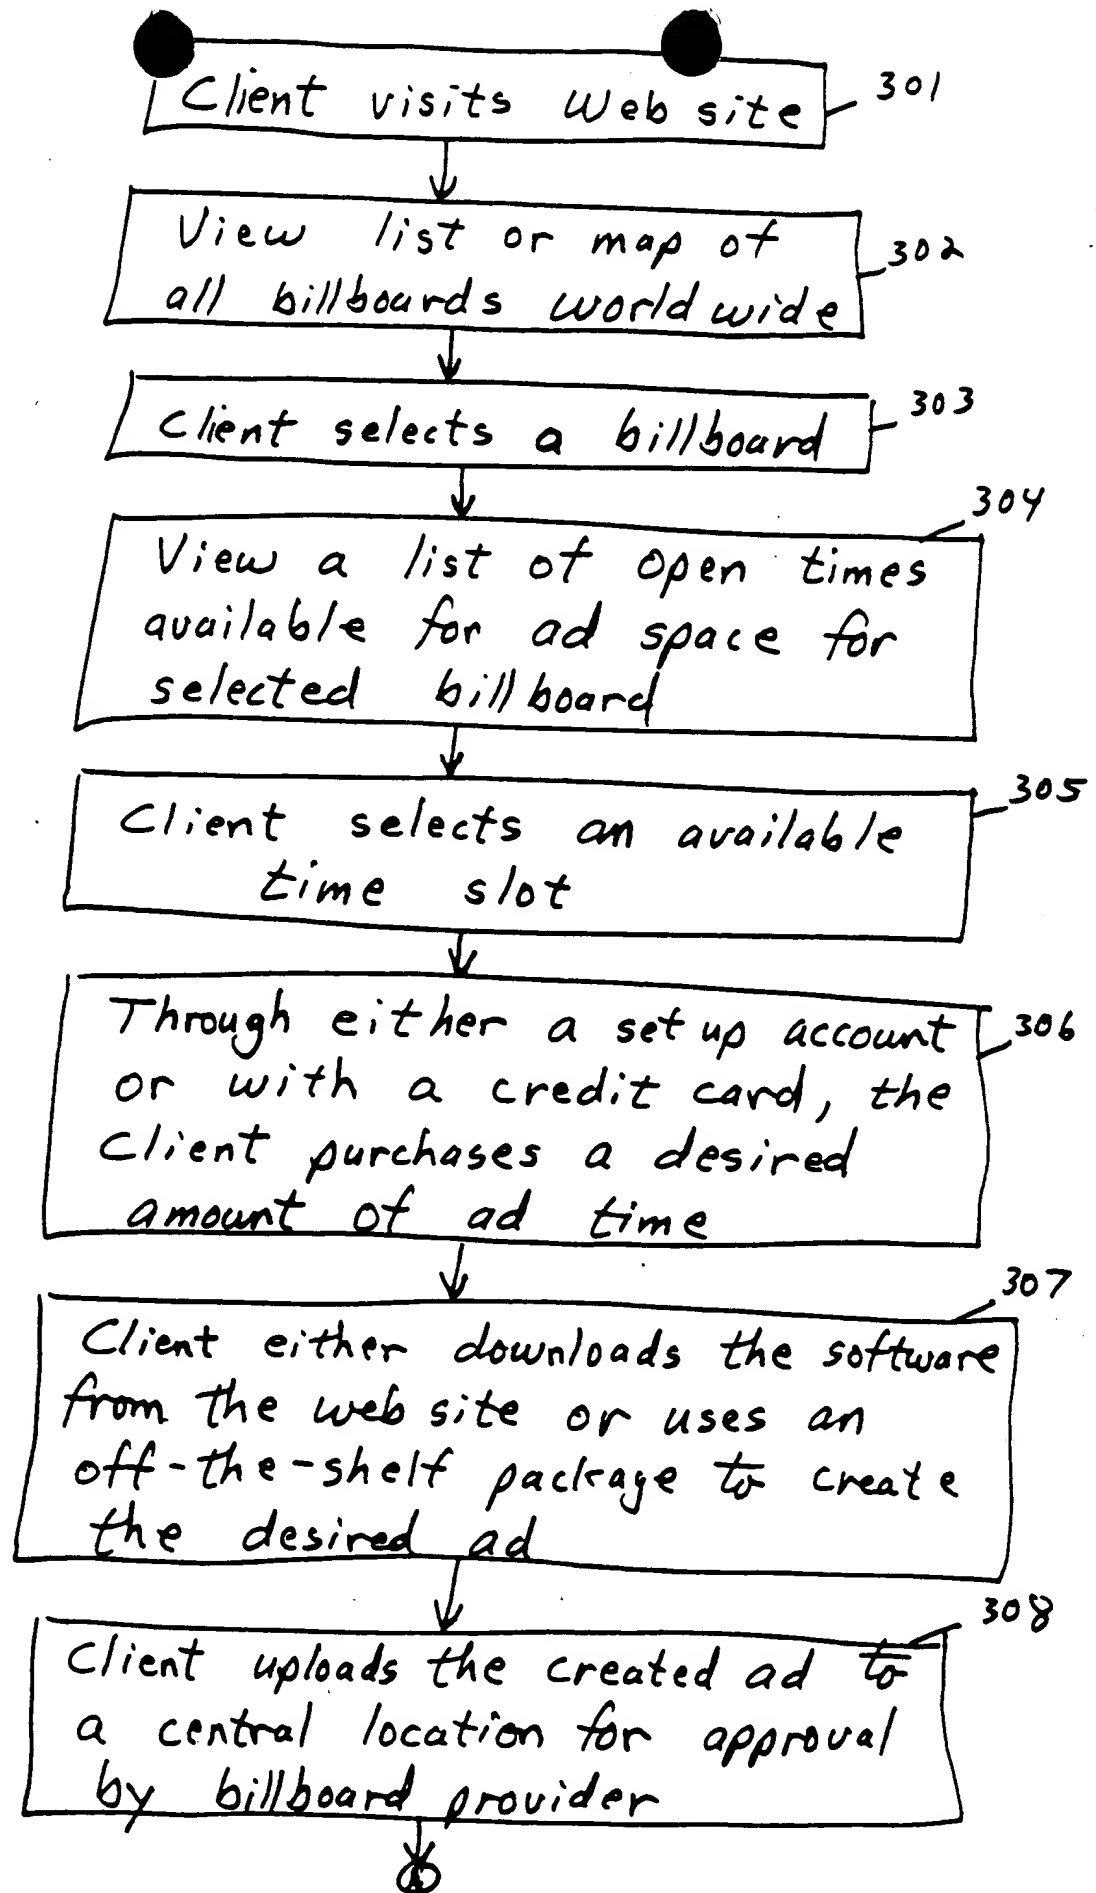 Client visits Web site
301
View list or map of
all billboards world wide
302
Client selects a billboard
303
304
View a list of open times
available for ad space for
selected billboard
305
Client selects an available
time slot
Through either a set up account
or with a credit card, the
Client purchases a desired
amount of ad time
306
307
Client either downloads the software
from the web site or uses an
off-the-shelf package to create
the desired ad
308
Client uploads the created ad to
a central location for approval
by billboard provider